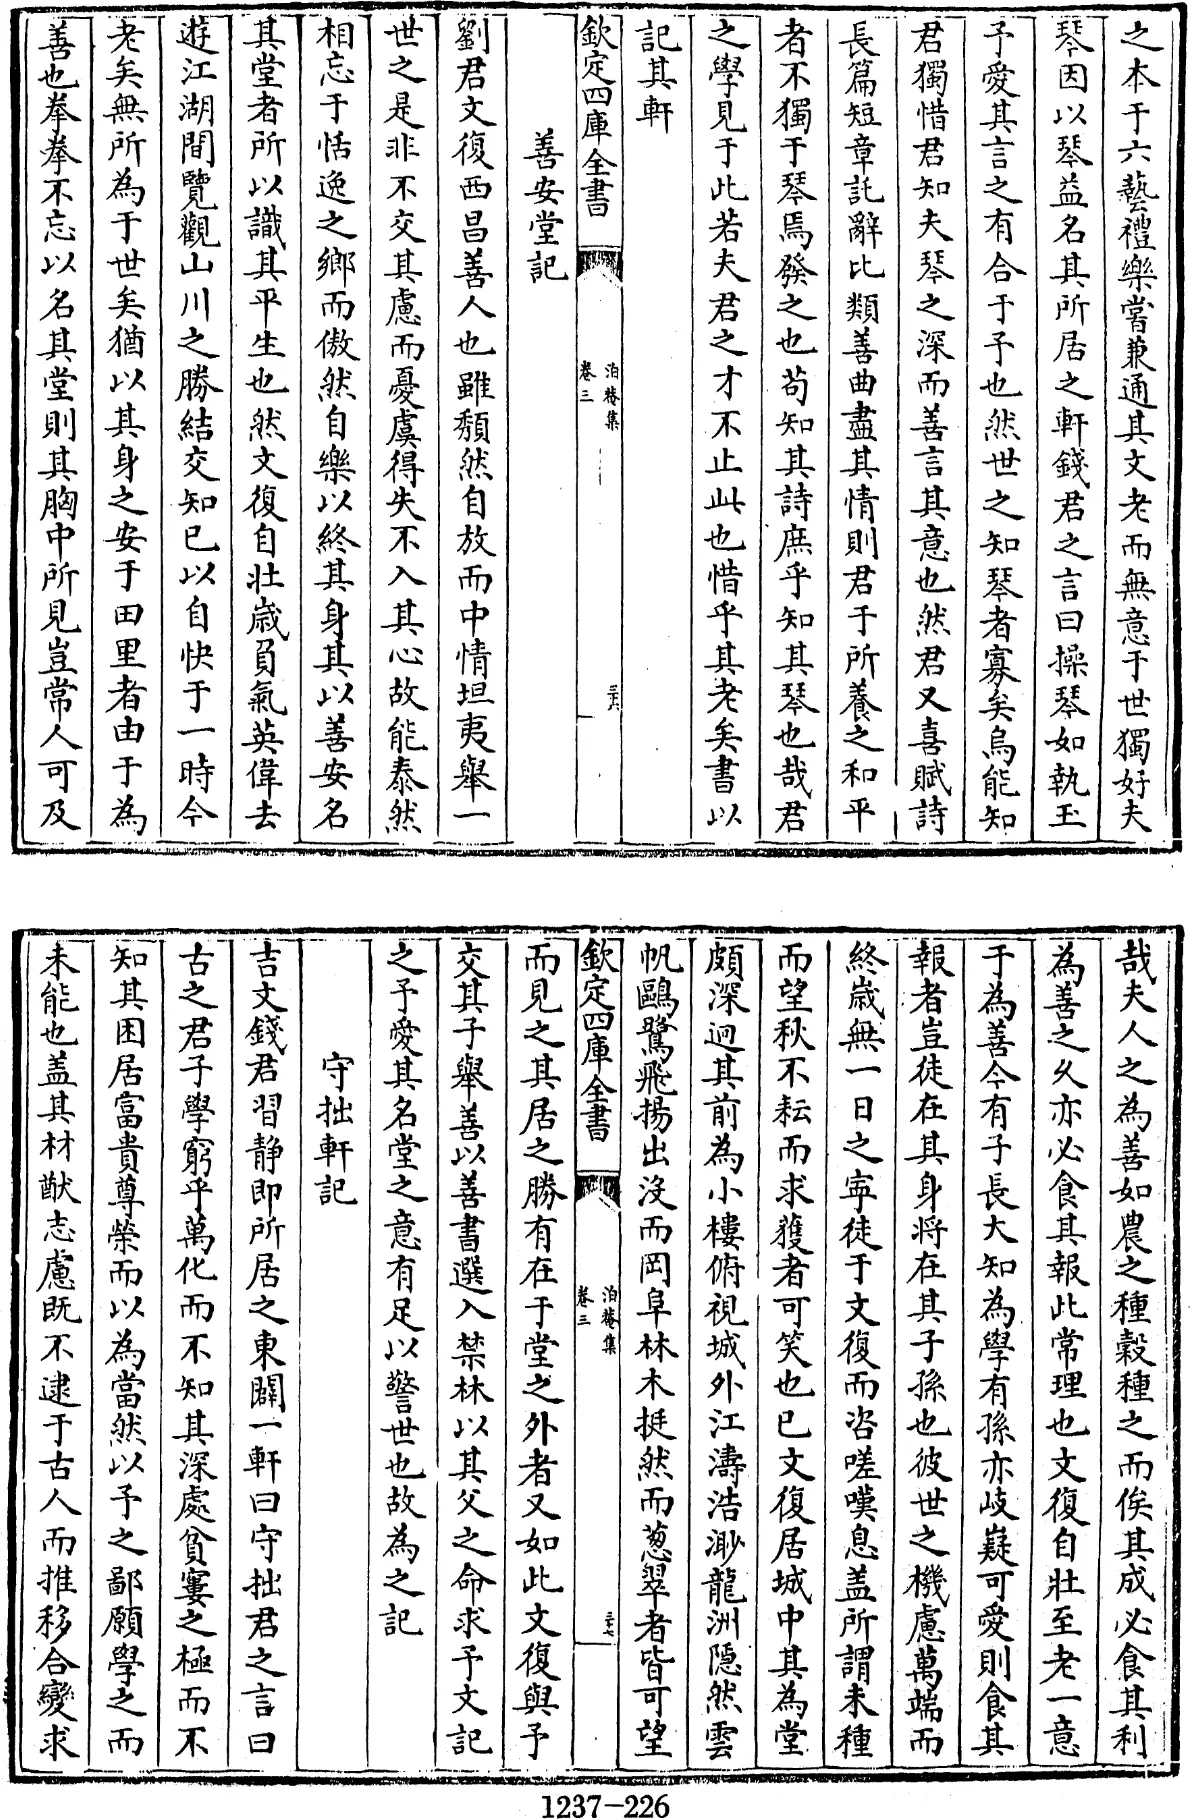 之本于六藝禮樂嘗兼通其文老而無意于世獨好夫
琴因以琴益名其所居之軒錢君之言曰操琴如執玉
予愛其言之有合于予也然世之知琴者寡矣烏能知
君獨惜君知夫琴之深而善言其意也然君又喜賦詩
長篇短章託辭比類善曲盡其情則君于所養之和平
者不獨于琴焉發之也苟知其詩庶乎知其琴也哉君
之學見于此若夫君之才不止此也惜乎其老矣書以
記其軒
欽定四庫全書
泊菴集
卷三
三十六
善安堂記
劉君文復西昌善人也雖頹然自放而中情坦夷舉一
世之是非不交其慮而憂虞得失不入其心故能泰然
相忘于恬逸之鄉而傲然自樂以終其身其以善安名
其堂者所以識其平生也然文復自壯歲負氣英偉去
遊江湖間覽觀山川之勝結交知已以自快于一時今
老矣無所為于世矣猶以其身之安于田里者由于為
善也拳拳不忘以名其堂則其胸中所見豈常人可及
哉夫人之為善如農之種穀種之而俟其成必食其利
為善之久亦必食其報此常理也文復自壯至老一意
于為善今有子長大知為學有孫亦岐嶷可愛則食其
報者豈徒在其身將在其子孫也彼世之機慮萬端而
終歲無一日之寧徒于文復而咨嗟嘆息盖所謂未種
而望秋不耘而求獲者可笑也已文復居城中其為堂
頗深迥其前為小樓俯視城外江濤浩渺龍洲隱然雲
帆鷗鷺飛揚出沒而岡阜林木挺然而葱翠者皆可望
欽定四庫全書
泊菴集
卷三
三十七
而見之其居之勝有在于堂之外者又如此文復與予
交其子舉善以善書選入禁林以其父之命求予文記
之予愛其名堂之意有足以警世也故為之記
守拙軒記
吉文錢君習靜即所居之東闢一軒曰守拙君之言曰
古之君子學窮乎萬化而不知其深處貧窶之極而不
知其困居富貴尊榮而以為當然以予之鄙願學之而
未能也盖其材猷志慮既不逮于古人而推移合變求
1237-226